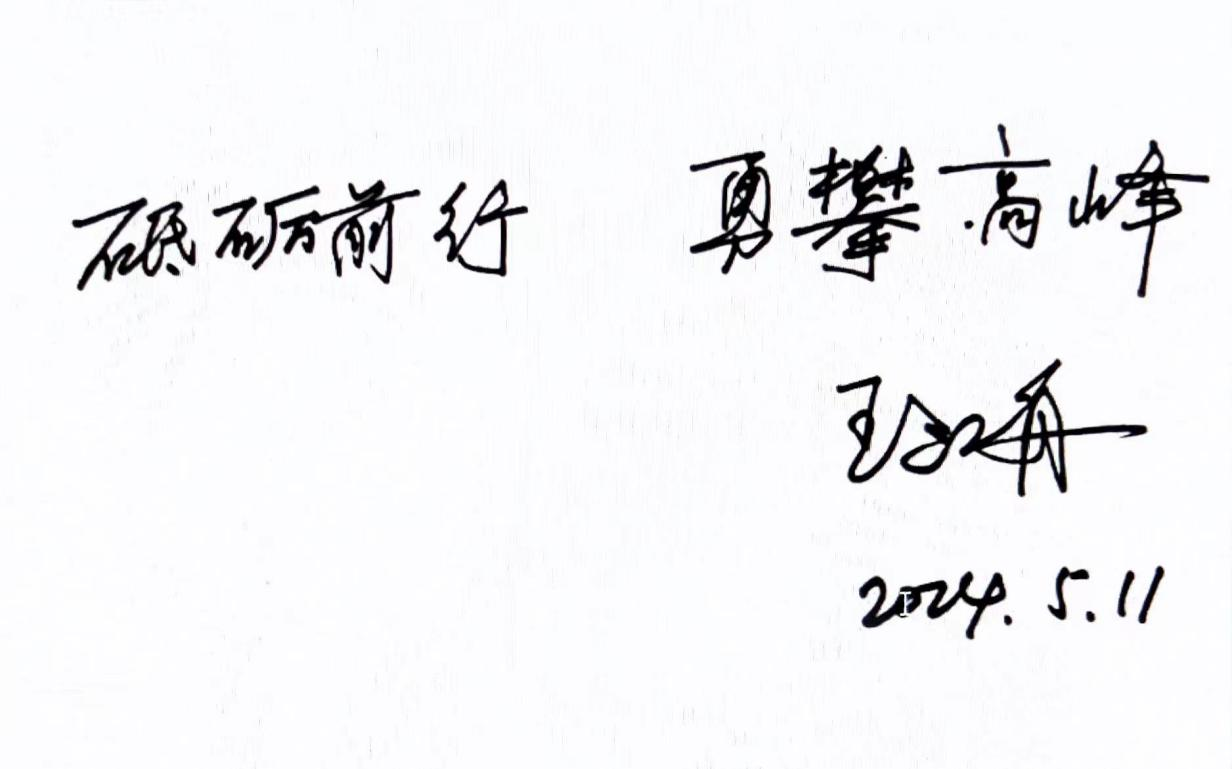 砥砺前行 勇攀高峰
2024.5.11